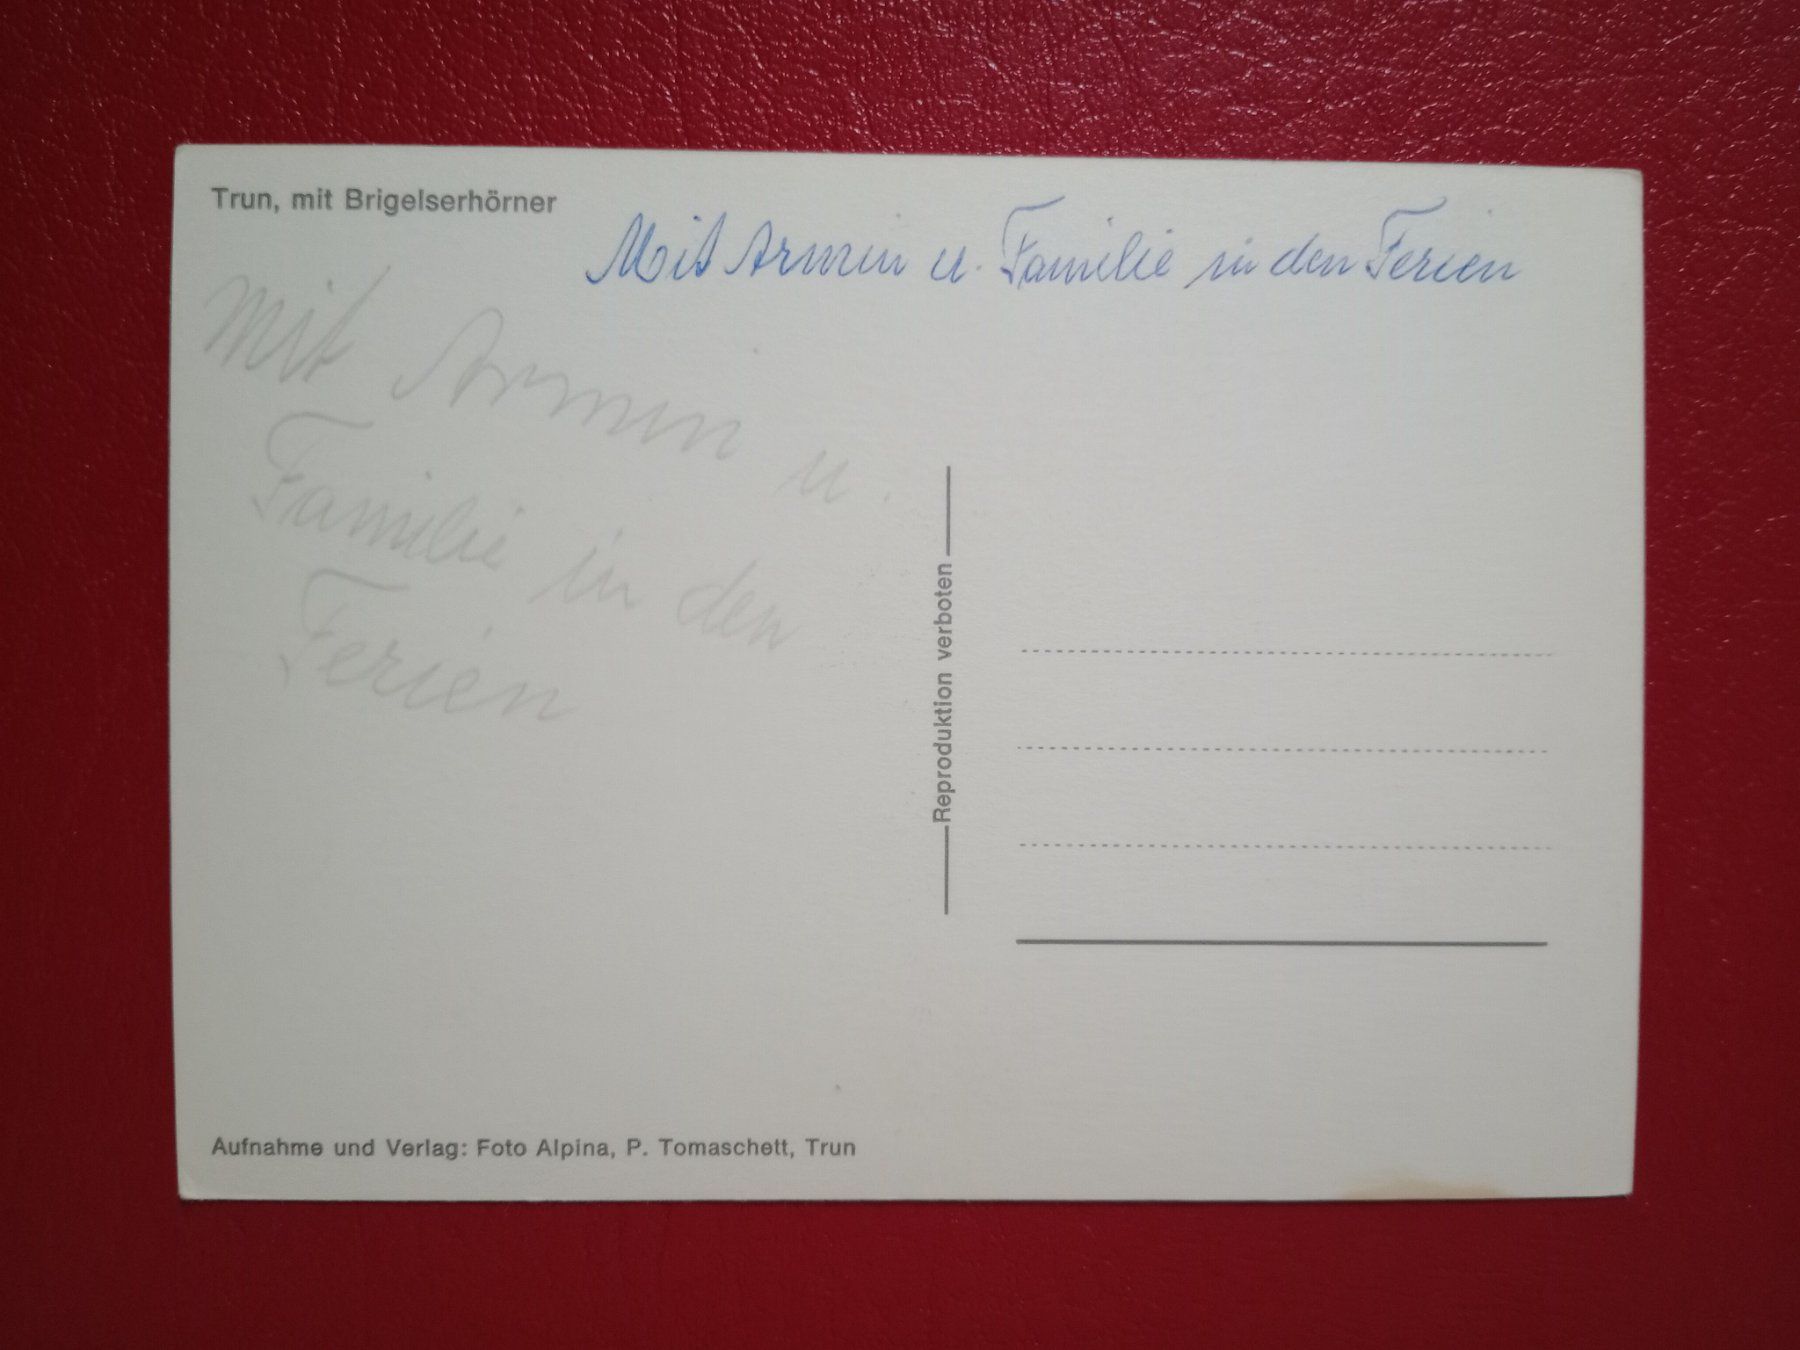 Trun, mit Brigelserhörner
Mit Armin u. Familie in den Ferien
Mit Armin u.
Familie in den
Ferien
Reproduktion verboten
Aufnahme und Verlag: Foto Alpina, P. Tomaschett, Trun